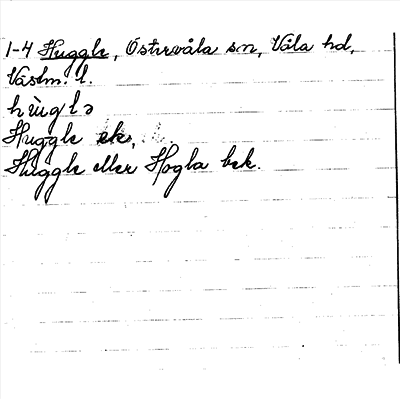 1-4 Huggle, Östervåla sn, Våla hd,
Västm. l.
hùglə
Huggle ek.,
Huggle eller Hogla bek.